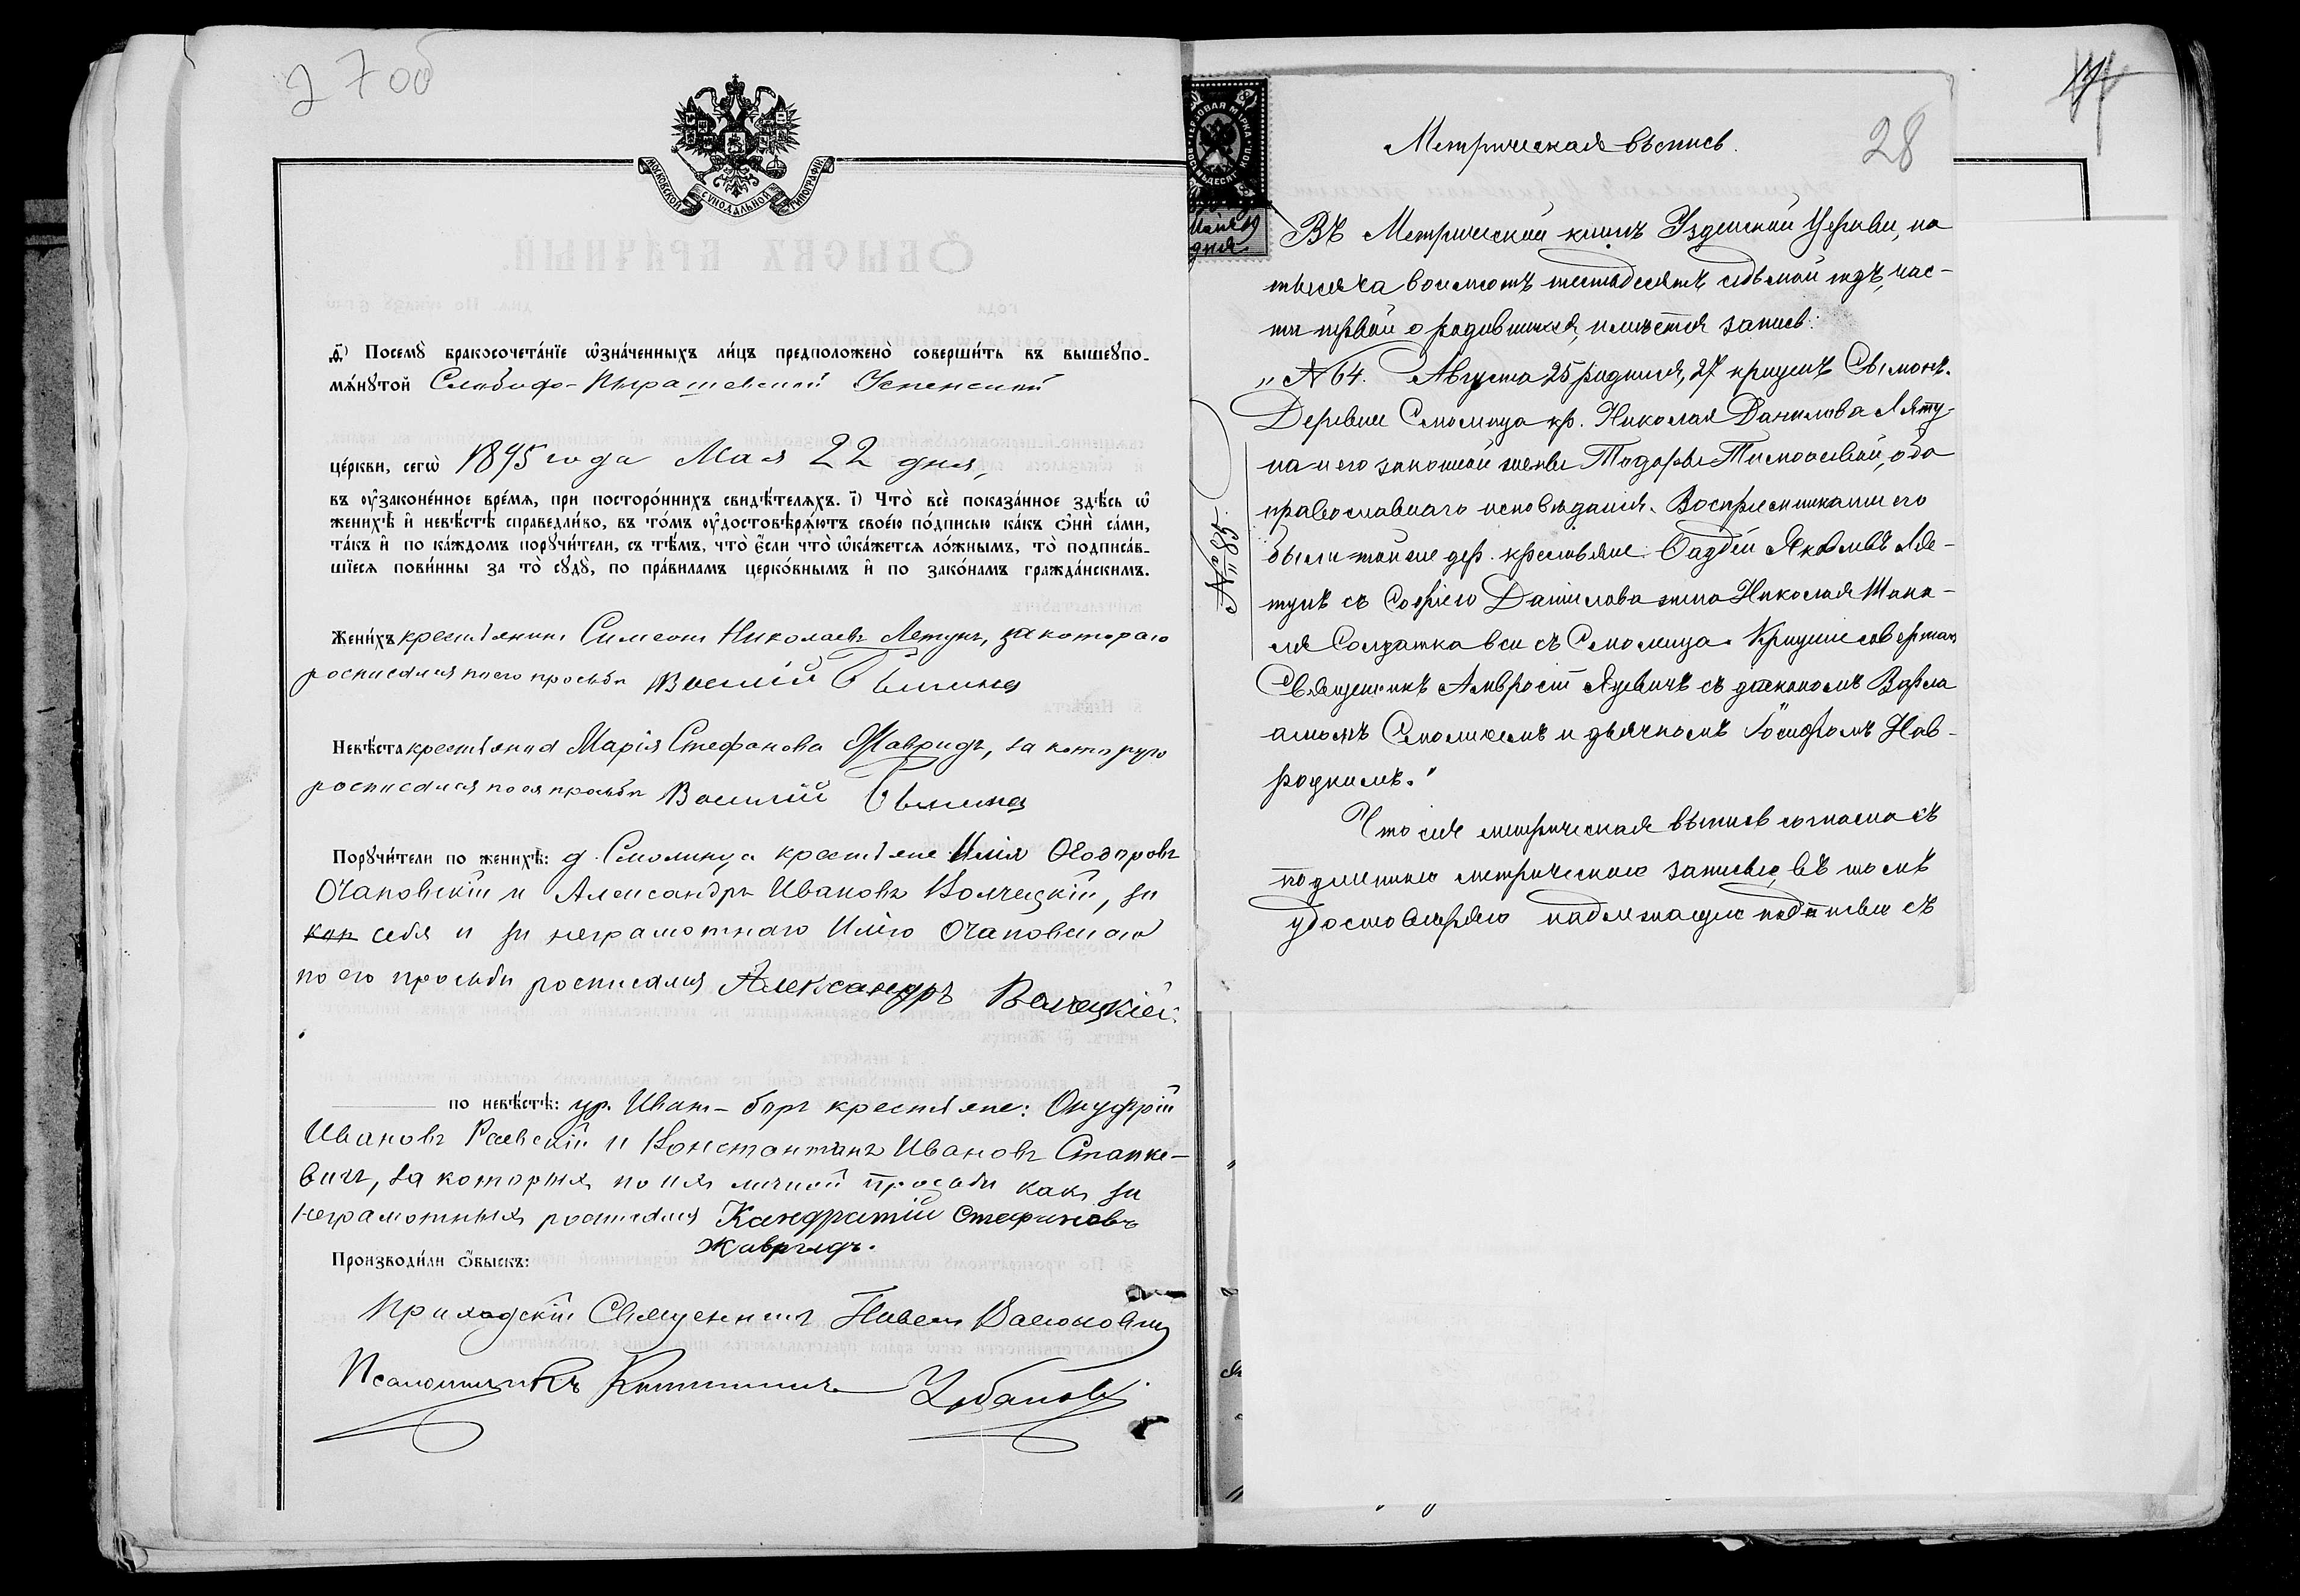 27 об
МОСКОВСКОЙ СѴНОДАЛЬНОЙ ТИПОГРАФІИ
д҃) Посемꙋ̀ бракосочета́нїе ѡ҆зна́ченныхъ ли́цъ предположено̀ соверши́ть въ вышеꙋпо-
мѧ́нꙋтой Слободо-Пырашевской Успенской
це́ркви, сегѡ̀ 1895 года Мая 22 дня,
въ ᲂу҆законе́нное вре́мѧ, при посторо́ннихъ свидѣ́телѧхъ. і҃) Что̀ всѐ показа́нное здѣ́сь ѡ҆
женихѣ̀ и҆ невѣ́стѣ справедли́во, въ то́мъ ᲂу҆достовѣрѧ́ютъ свое́ю по́дписью ка́къ ѻ҆нѝ са́ми,
та́къ и҆ по ка́ждомъ порꙋчи́тели, съ тѣ́мъ, что̀ є҆́сли что̀ ѡ҆ка́жетсѧ ло́жнымъ, то̀ подписа́в-
шїесѧ пови́нны за то̀ сꙋдꙋ̀, по пра́виламъ церко́внымъ и҆ по зако́намъ гражда́нскимъ.
Жени́хъ крестьянинъ Симеонъ Николаевъ Летунъ, за котораго
росписался по его просьбѣ Василій
Невѣ́ста крестьянка Марія Стефанова Жавридъ, за которую
росписался по ея просьбѣ Василій
Порꙋчи́тели по женихѣ̀: д. Смолинца крестьяне Илія Ѳеодоровъ
Очаповскій и Александръ Ивановъ Волчецкій, за
себя и за неграмотнаго Илію Очаповскаго
по его просьбѣ росписался Александръ Волчецкій.
по невѣ́стѣ: ур. Иванъ-боръ крестьяне: Онуфрій
Ивановъ Раевскій и Константинъ Ивановъ Станке-
вичъ, за которыхъ по ихъ личной просьбѣ какъ за
неграмотныхъ росписался Кандратій Стефановъ
Жавридъ.
Производи́ли ѻ҆́быскъ:
Приходскій Священникъ Павелъ
Псаломщикъ Урбановъ
28
Метрическая выпись.
Мая 19
дня
Въ Метрической книгѣ Узденской Церкви, на
тысяча восемсотъ шестьдесятъ седьмой годъ, час-
ти первой о родившихся, имѣется запись:
„№ 64. Августа 25 родился, 27 крещенъ Сымонъ.
Деревни Смолинца кр. Николая Данилова Ляту-
на и его законной жены Тодоры Тимоѳевой, оба
православнаго исповѣданія. Воспріемниками его
были той же дер. крестьяне Ѳаддей Яковлевъ Ля-
тунъ съ Софіею Данилова жена Николая
Солдатка вси съ Смолинца. Крещеніе совершалъ
Священникъ Амвросій Яцевичъ съ діакономъ Варла
амомъ Смоличемъ и дьячкомъ Іосифомъ Нав-
роцкимъ."
Что сія метрическая выпись согласна съ
подлинною метрическою записью, въ томъ
удостовѣряю надлежащею подписью съ
№ 185